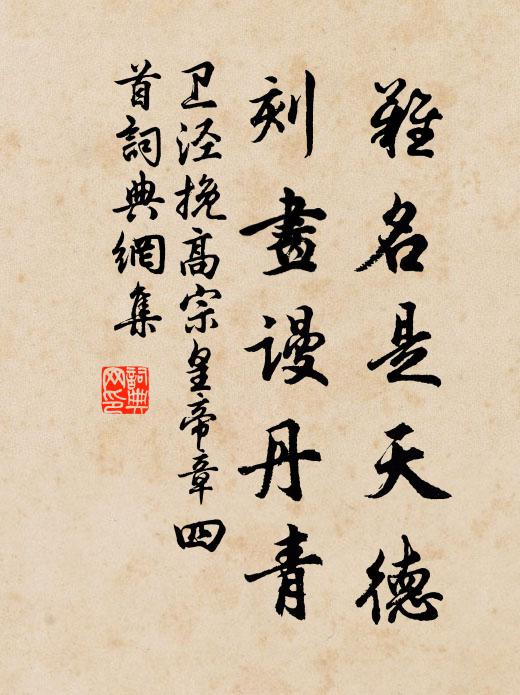 難名是天德
刻畫謾丹青
卫泾挽高宗皇帝章四
首詞典網集
詞典
网印